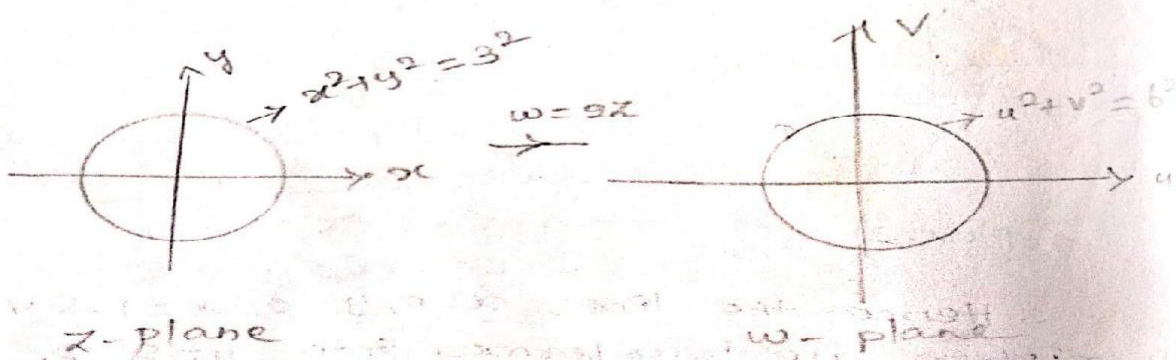 y
x²+y²=3²
x
w=2z
V
u²+v²=6²
u
z-plane
w-plane